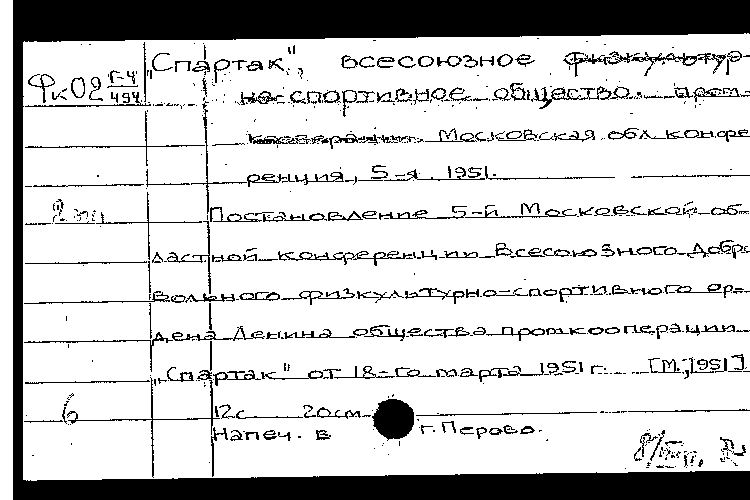 Фк02 Г-4/494
"Спартак", всесоюзное физкультур-
но-спортивное общество. пром-
кооперации. Московская обл. конфе
ренция, 5-я. 1951.
2 эк.
Постановление 5-й Московской об-
ластной конференции Всесоюзного Добро
вольного физкультурно-спортивного ор-
дена Ленина общества промкооперации
"Спартак" от 18-го марта 1951 г. [М., 1951]
6
12с. 20см
Напеч. в г. Перово.